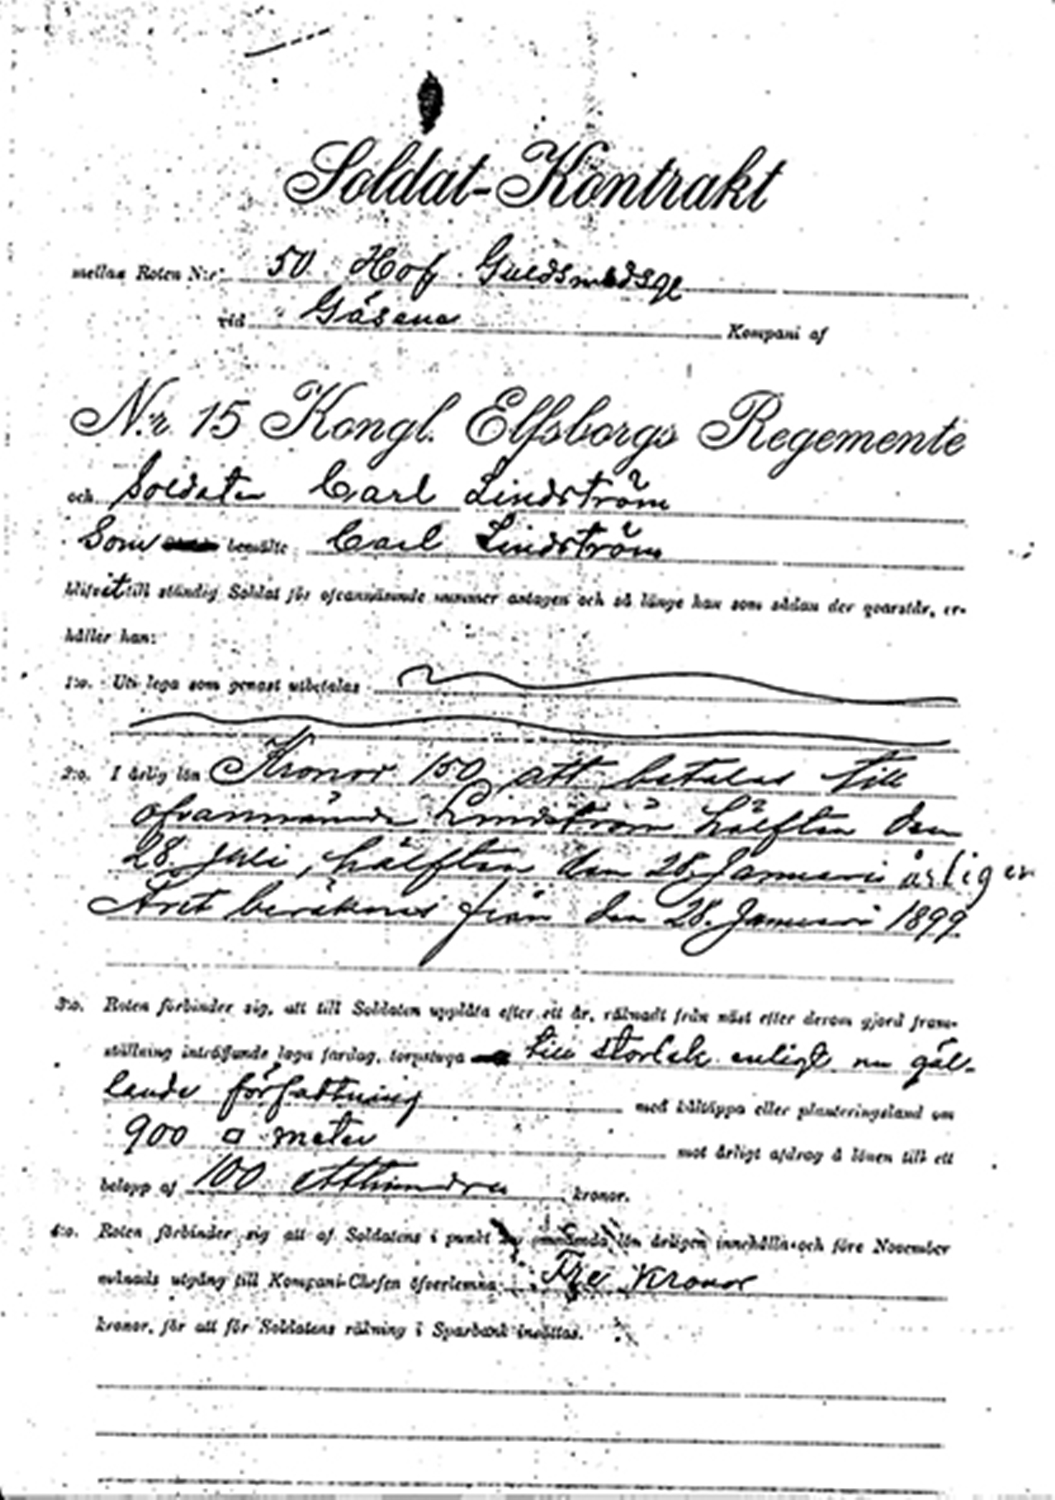 Soldat-Kontrakt
mellan Roten N:r 50 Hof Guldsmedsg
vid Gäsene Kompani af
N:r 15 Kongl. Elfsborgs Regemente
och Soldaten Carl Lindström
Som bemälte Carl Lindström
blifvit till ständig Soldat för ofvannämnde nummer antagen och så länge han som sådan der qvarstår, er-
håller han:
1:o. Uti lega som genast utbetalas
2:o. I årlig lön Kronor 150, att betalas till
ofvannämnde Lindström hälften den
28. Juli, hälften den 28. Januari årligen
Året beräknas från den 28. Januari 1899
3:o. Roten förbinder sig, att till Soldaten upplåta efter ett år, räknadt från näst efter derom gjord fram-
ställning inträffande laga fardag, torpstuga till storlek enligt nu gäl-
lande författning med kåltäppa eller planteringsland om
900 □ meter mot årligt afdrag å lönen till ett
belopp af 100 etthundra kronor.
4:o. Roten förbinder sig att af Soldatens i punkt omnämnda lön årligen innehålla och före November
månads utgång till Kompani-Chefen öfverlemna Tre Kronor
kronor, för att för Soldatens räkning i Sparbank insättas.